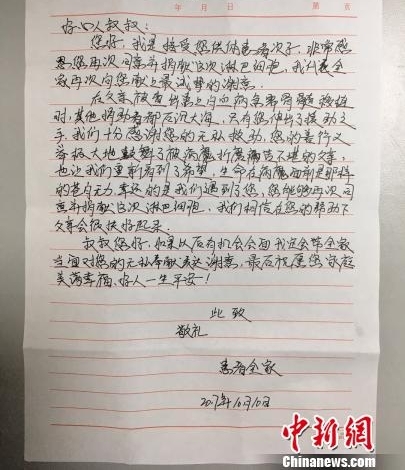 年 月 日 第 页
好心人叔叔：
您好，我是接受您供体患者次子，非常感
恩您再次同意并捐献这次淋巴细胞，我代表全
家再次向您献上最诚挚的谢意。
在父亲被查出患上白血病急需骨髓移植
时，其他捐助者都石沉大海，只有您伸出了援助之
手，我们十分感谢您的无私救助，您的善行义
举极大地鼓舞了被病魔折磨痛苦不堪的父亲，
也让我们重新看到了希望，生命在病魔面前是那样
的苍白无力，幸运的是我们遇到了您，您能够再次同
意并捐献这次淋巴细胞，我们相信在您的帮助下
父亲会很快好起来。
叔叔您好，如果以后有机会会面我定会带全家
当面对您的无私奉献表达谢意，最后祝愿您家庭
美满幸福，好人一生平安！
此致
敬礼
患者全家
2017年10月10日
中新网
Chinanews.com